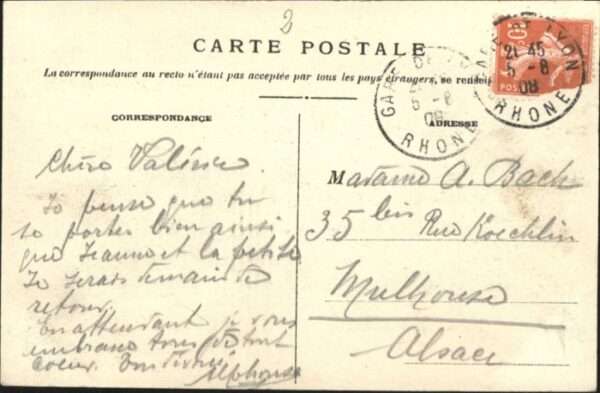 2
CARTE POSTALE
La correspondance au recto n'étant pas acceptée par tous les pays étrangers, se renseig
CORRESPONDANCE
ADRESSE
GARE DE LYON
21 45
5 - 8
08
RHONE
GARE DE
5 - 8
08
RHONE
10
POSTES
Chère Valérie
Je pense que tu
te portes bien ainsi
que Jeanne et la petite
Je serais demain de
retour.
En attendant je vous
embrasse tous de tout
coeur.
Alphonse
Madame A. Bach
35 bis Rue Koechlin
Mulhouse
Alsace